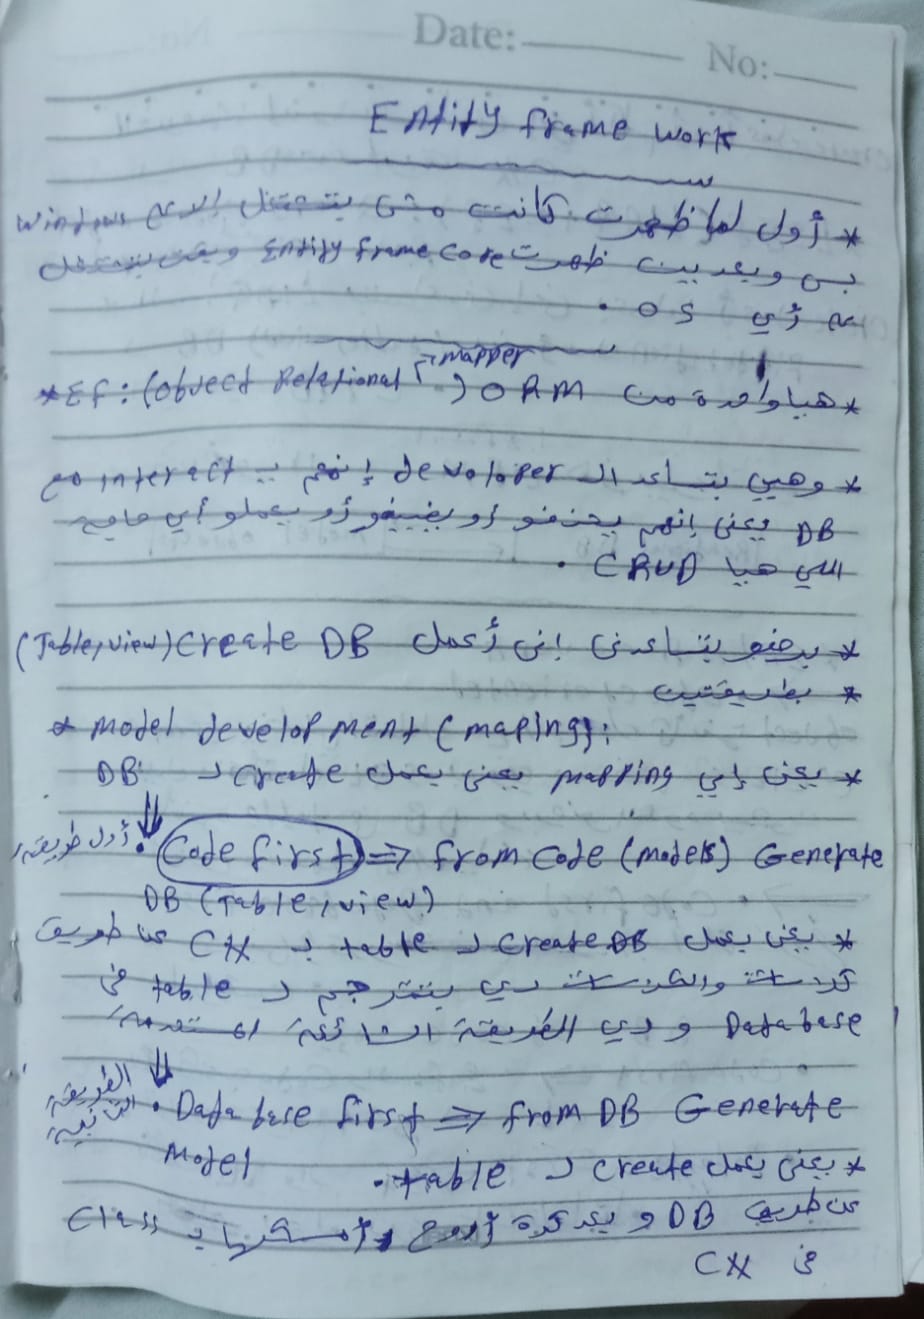 Date: No:
Entity frame work
* أول لما ظهرت كانت مش بتشتغل الا ع windows
بس وبعدين ظهرت Entity frame core وبقت بتشتغل
ع أي OS .
* هيا واحدة من ORM (Object Relational mapper) : EF *
* وهي بتساعد الـ developer إنهم يـ interact مع
DB يعني إنهم يحذفو أو يضيفو أو يعملو أي حاجه
اللي هيا CRUD .
* برضو بتساعدني إني أعمل Create DB (Table, view)
* بطريقتين
* Model development (maping):
* يعني إيه mapping يعني يعمل create لـ DB
أول طريقه . Code first => from Code (models) Generate
DB (Table, view)
* يعني يعمل Create DB لـ table بـ C# عن طريق
كلاسات والكلاسات دي بتترجم لـ table في
Database و دي الطريقة الشائعة المستخدمة
الطريقه التانيه . Data base first => from DB Generate
Model
* يعني يعمل create لـ table .
عن طريق DB و بعد كدة أروح أمسكها بـ Class
في C#